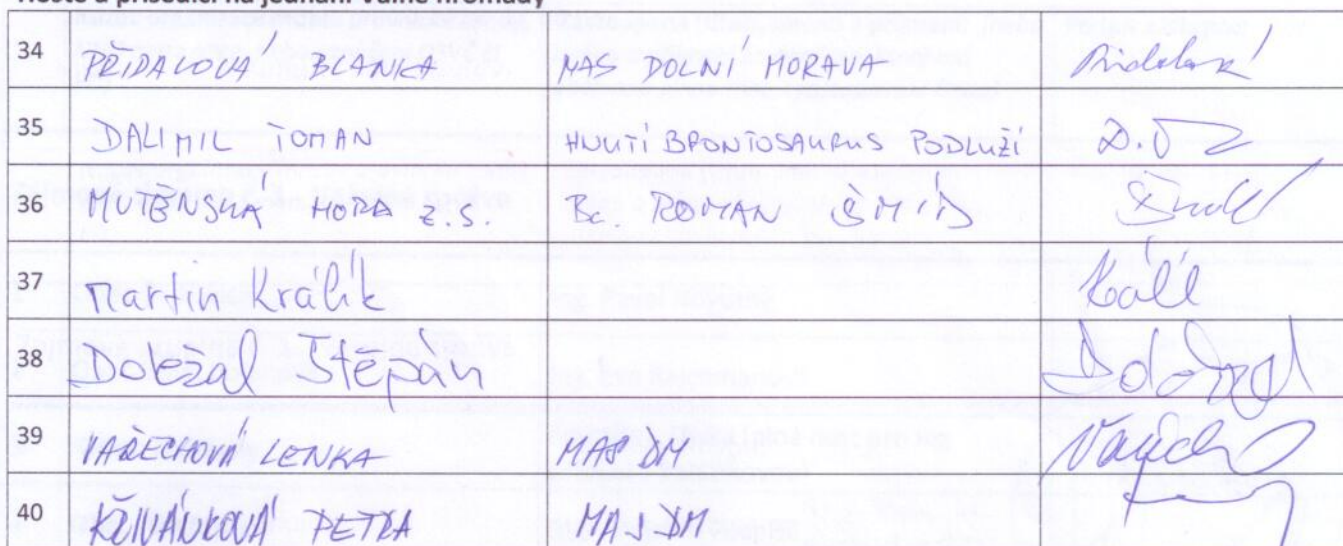 Hosté a přísedící na jednání Valné hromady
34 PŘIDALOVÁ BLANKA MAS DOLNÍ MORAVA
35 DALIMIL TOMAN HNUTÍ BRONTOSAURUS PODLUŽÍ
36 MUTĚNSKÁ HORA Z.S. Bc. ROMAN ŠMÍD
37 Martin Králik
38 Doležal Štěpán
39 VAŘECHOVÁ LENKA MAS DM
40 KŘIVÁNKOVÁ PETRA MAS DM